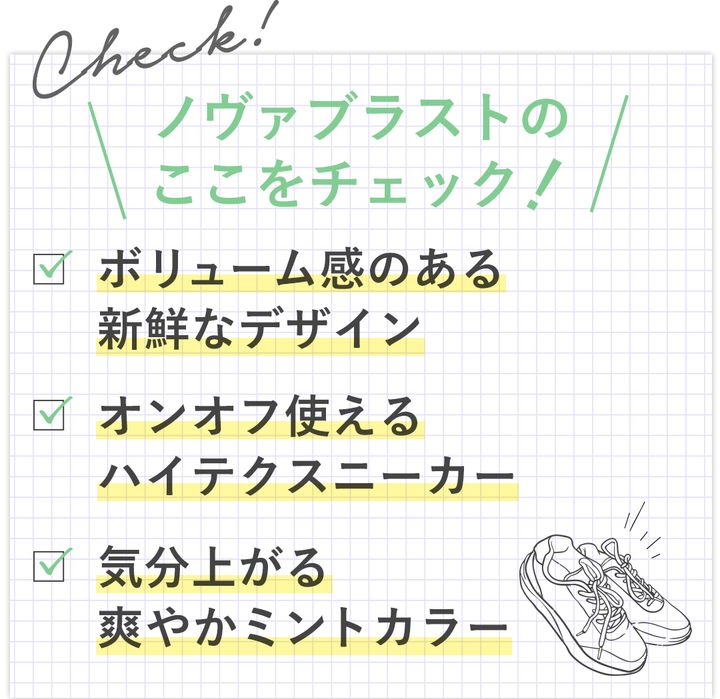 Check!
ノヴァブラストの
ここをチェック!
ボリューム感のある
新鮮なデザイン
オンオフ使える
ハイテクスニーカー
気分上がる
爽やかミントカラー